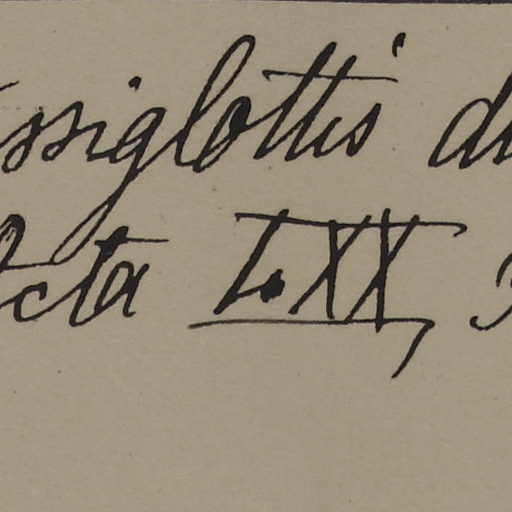 ssiglottis d
Acta LXX, 3